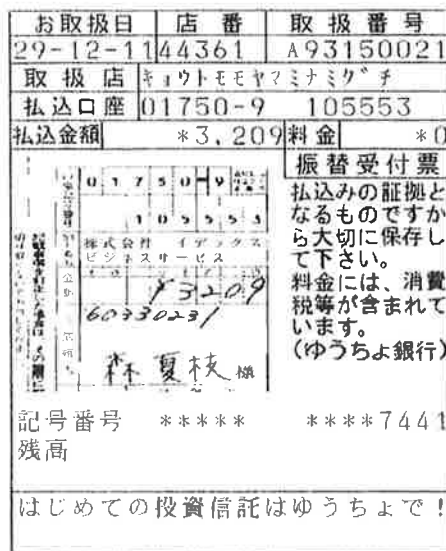 お取扱日 店番 取扱番号
29-12-11 44361 A93150021
取扱店 キョウトモモヤマミナミグチ
払込口座 01750-9 105553
払込金額 *3,209 料金 *0
振替受付票
払込みの証拠と
なるものですか
ら大切に保存し
て下さい。
料金には、消費
税等が含まれて
います。
(ゆうちょ銀行)
01750-9
105553
株式会社 イデックス
ビジネスサービス
¥3209
60330231
森 夏枝 様
記号番号 ***** ****7441
残高
はじめての投資信託はゆうちょで!